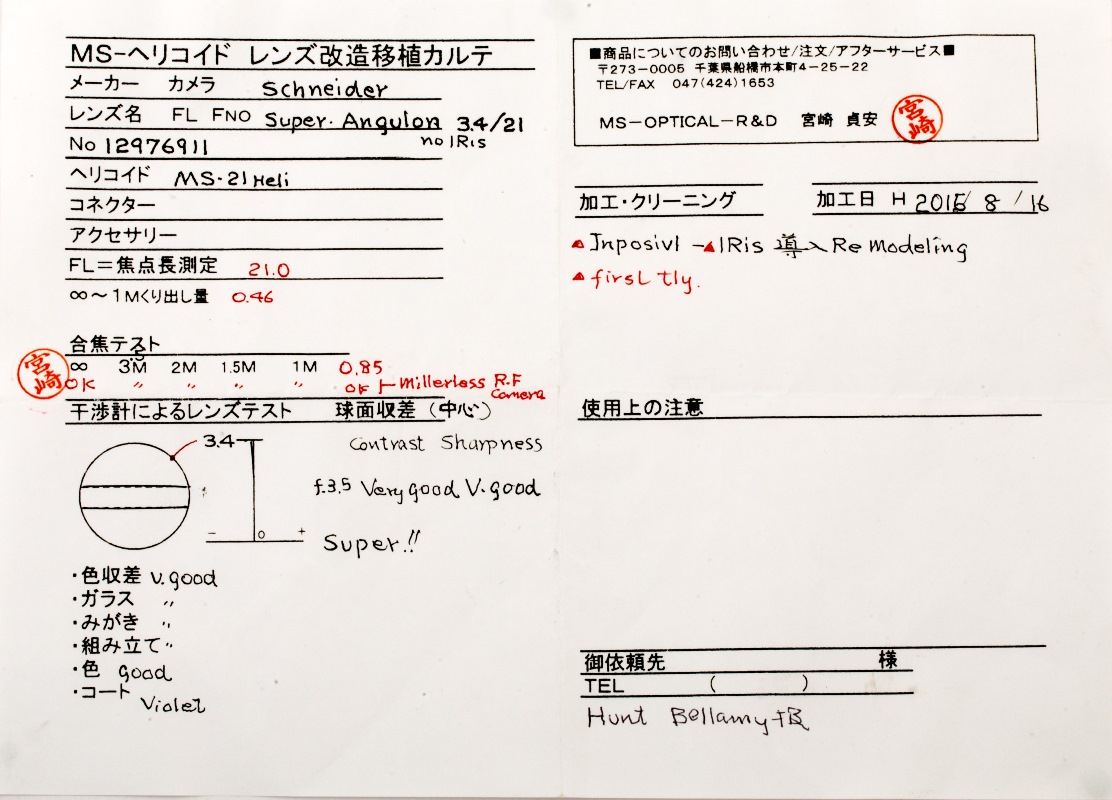 MS-ヘリコイド レンズ改造移植カルテ
メーカー カメラ Schneider
レンズ名 FL FNO Super. Angulon 3.4/21
No 12976911 no IRis
ヘリコイド MS-21 Heli
コネクター
アクセサリー
FL=焦点長測定 21.0
∞~1Mくり出し量 0.46
合焦テスト
宮崎
∞ 3M 2M 1.5M 1M 0.85
OK 〃 〃 〃 〃 OK Millerless R.F
Camera
干渉計によるレンズテスト 球面収差(中心)
3.4 Contrast Sharpness
f.3.5 Very good V.good
- 0 + Super!!
・色収差 V.good
・ガラス 〃
・みがき 〃
・組み立て 〃
・色 good
・コート Violet
■商品についてのお問い合わせ/注文/アフターサービス■
〒273-0005 千葉県船橋市本町4-25-22
TEL/FAX 047(424)1653
MS-OPTICAL-R&D 宮崎 貞安 宮崎
加工・クリーニング 加工日 H 2016/ 8 / 16
Inposivl → IRis 導入 Re Modeling
firsL tly.
使用上の注意
御依頼先 様
TEL ( )
Hunt Bellamy